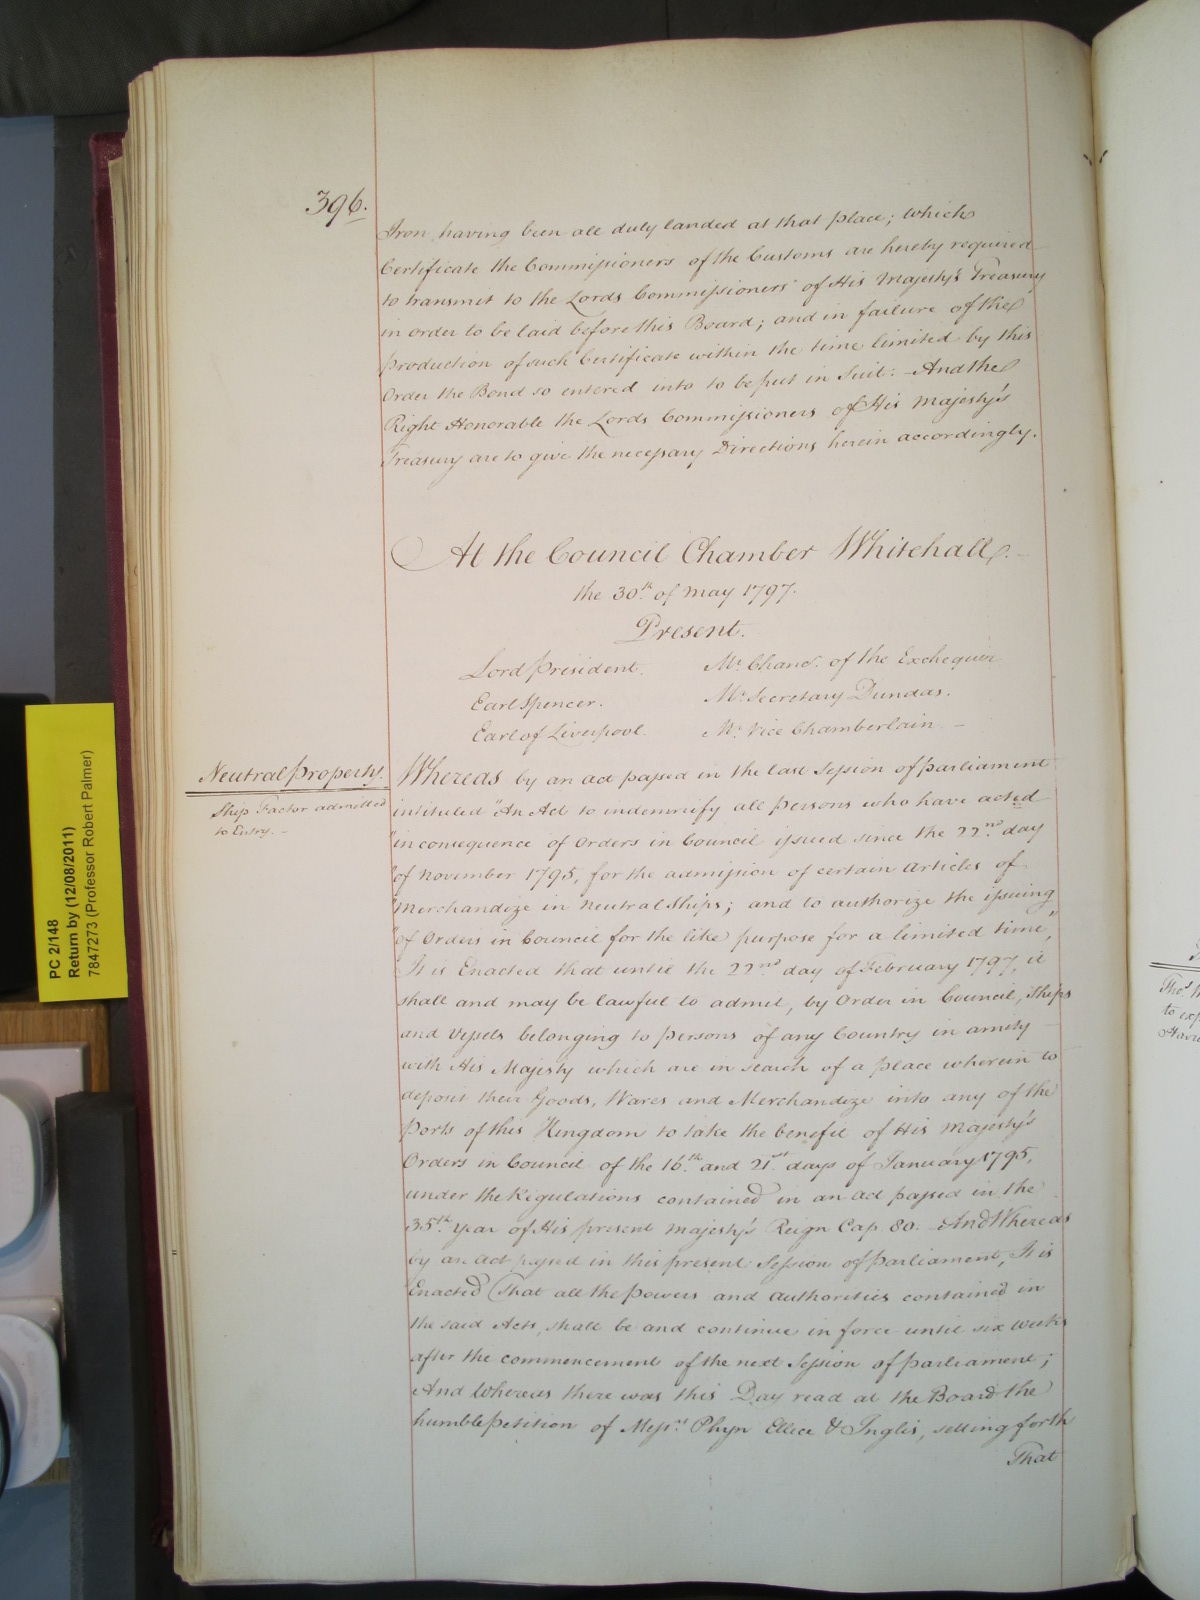 396.
Iron having been all duly landed at that place; which
Certificate the Commissioners of the Customs are hereby required
to transmit to the Lords Commissioners of His Majesty's Treasury
in order to be laid before this Board; and in failure of the
production of such Certificate within the time limited by this
Order the Bond so entered into to be put in Suit: And the
Right Honorable the Lords Commissioners of His Majesty's
Treasury are to give the necessary Directions herein accordingly.
At the Council Chamber Whitehall.
the 30th. of May 1797.
Present.
Lord President. Mr. Chanr. of the Exchequer
Earl Spencer. Mr. Secretary Dundas.
Earl of Liverpool. Mr. Vice Chamberlain
Neutral Property.
Ship Factor admitted
to Entry.
Whereas by an act passed in the last Session of parliament
intituled "An Act to indemnify all persons who have acted
"in consequence of Orders in Council issued since the 22nd. day
"of November 1795, for the admission of certain articles of
"Merchandize in neutral Ships; and to authorize the issuing
"of Orders in Council for the like purpose for a limited time,"
It is Enacted that until the 22nd day of February 1797, it
shall and may be lawful to admit, by Order in Council, Ships
and Vessels belonging to persons of any Country in amity
with His Majesty which are in search of a place wherein to
deposit their Goods, Wares and Merchandize into any of the
Ports of this Kingdom to take the benefit of His Majesty's
Orders in Council of the 16th. and 21st. days of January 1795,
under the Regulations contained in an act passed in the
35th. Year of His present Majesty's Reign Cap 80. And Whereas
by an Act passed in this present Session of parliament, It is
Enacted That all the Powers and authorities contained in
the said Acts, shall be and continue in force until six weeks
after the commencement of the next Session of parliament;
And Whereas there was this Day read at the Board the
humble petition of Messrs. Phyn Ellice & Inglis, setting forth
That
PC 2/148
Return by (12/08/2011)
7847273 (Professor Robert Palmer)